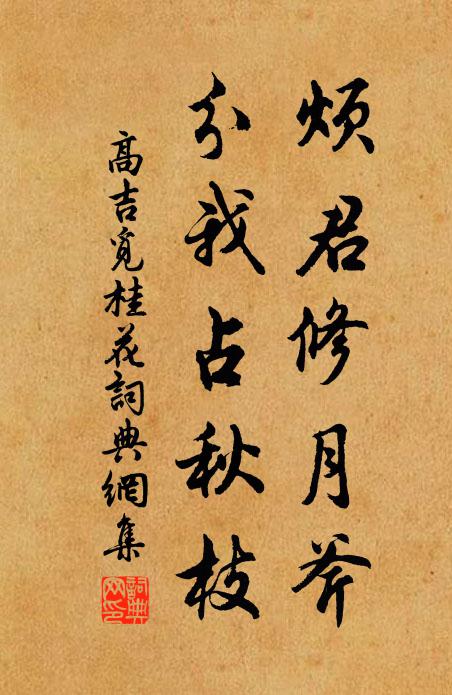 煩君修月斧
分我占秋枝
高吉覓桂花詞典網集
詞典網印